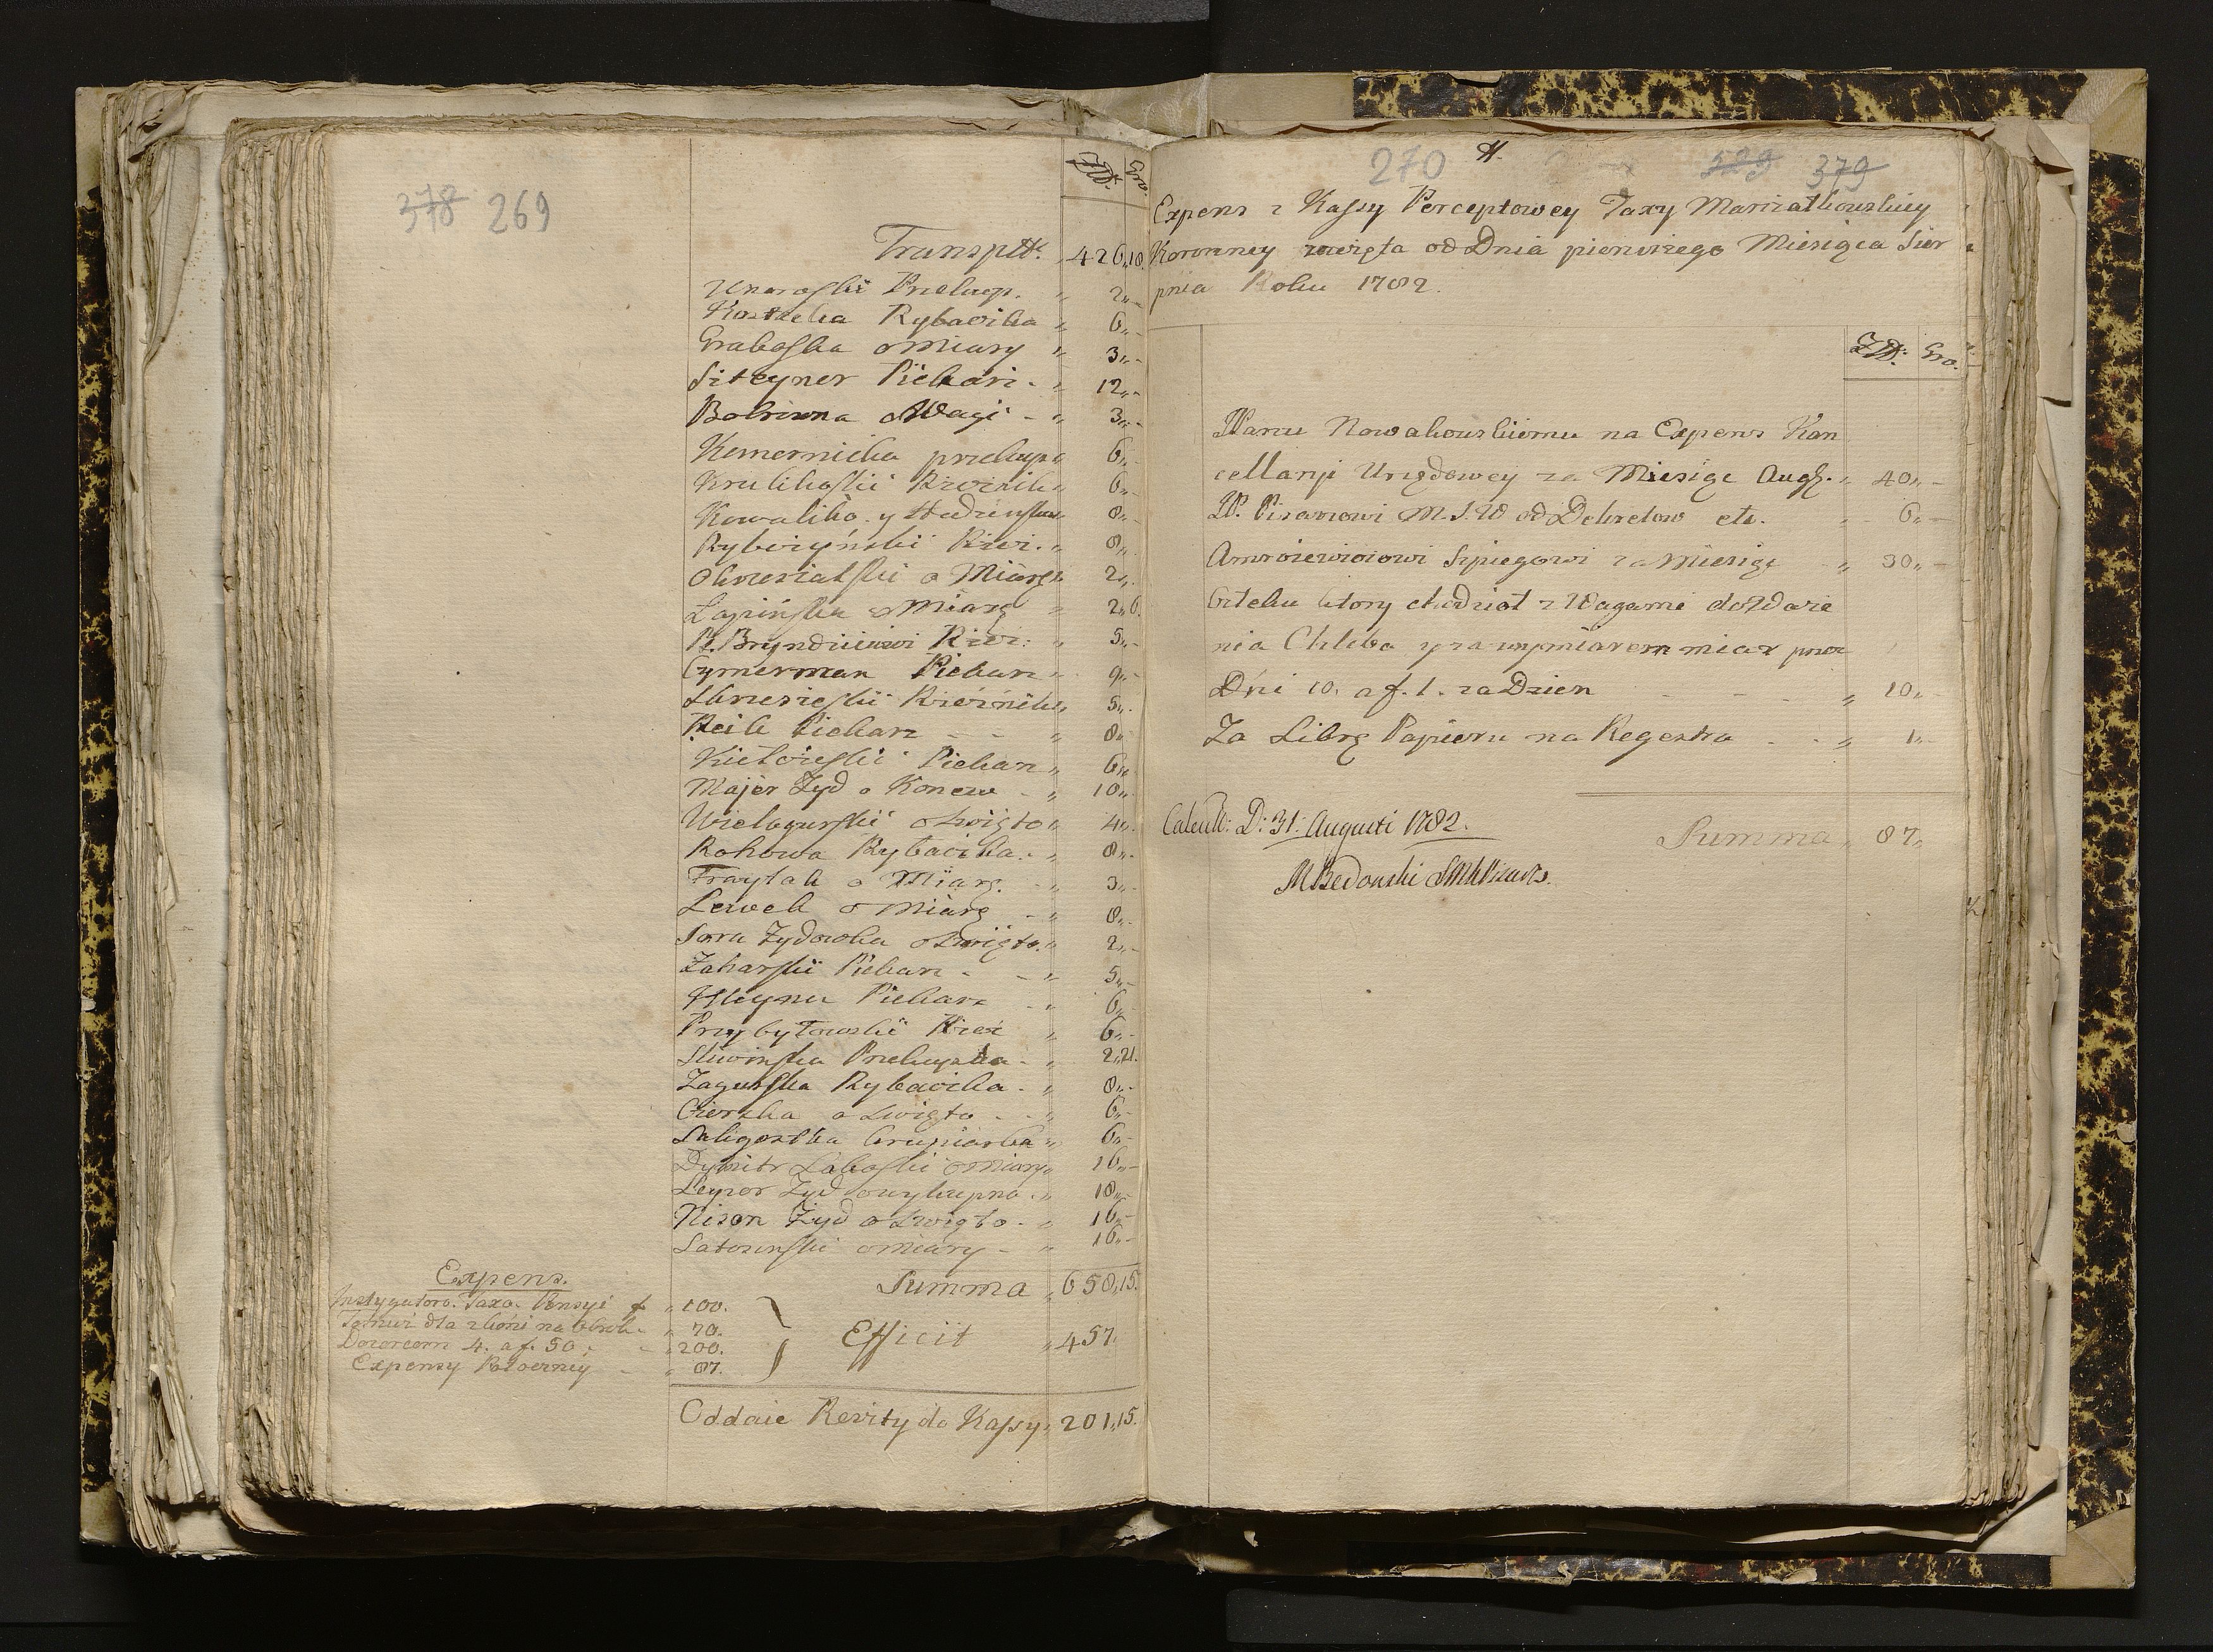 378 269
Złł. Gro.
Transptt. 426,,18.
Unaroski Przekup. " 2,,-
Kostecka Rybaczka " 6,,-
Graboska o Miary " 3,,-
Siteyner Piekarz - " 12,,-
Bobrowna o Wagi - " 3,,-
Kemernicka przekup. " 6,,-
Krulikoski Rzeźnik " 6,,-
Kowalika y " 8,,-
Rybczyński Rzeź. " 8,,-
o Miarę " 2,,-
Łapińska o Miarę " 2,,6.
P. Rzeź: " 5,,-
Cymerman Piekarz " 9,,-
Rzeźnik " 5,,-
Reik Piekarz - - " 8,,-
Piekarz " 6,,-
Majer Żyd o Konew - " 10,,
Wielogurski o święto " 4,,-
Rohowa Rybaczka. - " 8,,-
Fraytak o Miarę - " 3,,-
Lewek o Miarę - " 8,,-
Sora Żydowka o Święto. " 2,,-
Zakarski Piekarz - - " 5,,-
Kleynu Piekarz - " 6,,-
Przybyłowski Rzeź " 6,,-
Sliwinska Przekupka - " 2,,21.
Zagurska Rybaczka - " 8,,-
Cierska o Swięto - - " 6,,-
Saligostka Krupiarka " 6,,-
Dymitr Łaboski o Miary " 16,,-
Leyzor Żyd o wykupno - " 18,,-
Nison Żyd o Swięto - " 16,,-
Satowski o Miary - " 16,,-
Summa " 658,,15.
Expens.
Instygatoro. Taxo. Pensyi f " 100.
Temuż dla z koni na Obrok - " 70.
Dozorcom 4. a f. 50. - " 200.
Expensy Poboczney - " 87.
Efficit " 457.
Oddaie Reszty do Kassy " 201,,15.
270 H. 529 379
Expens z Kassy Perceptowey Taxy Marszałkowskiey
Koronney zaczęta od Dnia pierwszego Miesiąca Sier
pnia Roku 1782.
Złł: Gro.
JPanu Nowakowskiemu na Expens Kan
cellaryi Urzędowey za Miesiąc Augs. " 40,,-
JP. Pisarzowi M. S. W od Dekretow etc. " 6,,-
Ambrożewiczowi Szpiegowi za Miesiąc " 30,,-
Człeku ktory chodził z Wagami do Ważenia
nia Chleba y za wymiarem miar przez
Dni 10. a f. 1. za Dzien - - " 10,,-
Za Librę Papieru na Regestra - - " 1,,-
Calculi: D: 31. Augusti 1782. Summa " 87,,
MBedoński